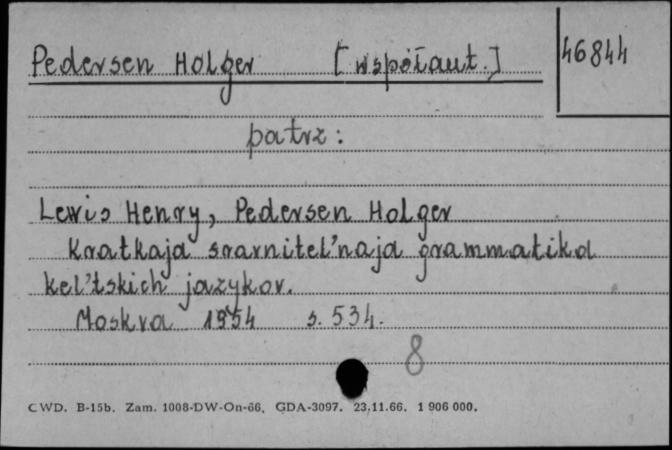 Pedersen Holger [współaut.]
46844
patrz:
Lewis Henry, Pedersen Holger
Kratkaja sravnitel'naja grammatika
kel'tskich jazykov.
Moskva 1954 s. 534.
8
CWD. B-15b. Zam. 1008-DW-On-66. GDA-3097. 23.11.66. 1 906 000.